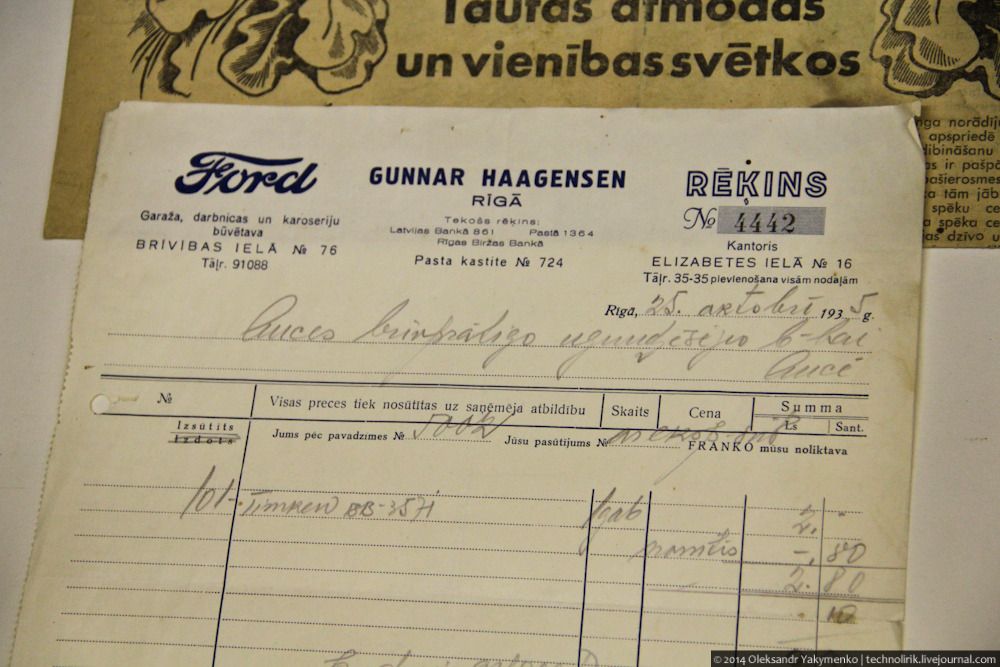 Tautas atmodas
un vienības svētkos
norādīju
apspriedē
dibināšanu
as ir pašpā
ka tām jāb
spēku ce
a spēka ce
as dzīvo u
Ford
Garaža, darbnicas un karoseriju
būvētava
BRĪVĪBAS IELĀ № 76
Tāļr. 91088
GUNNAR HAAGENSEN
RĪGĀ
Tekošs rēķins:
Latvijas Bankā 861 Pastā 1364
Rīgas Biržas Bankā
Pasta kastite № 724
RĒĶINS
№ 4442
Kantoris
ELIZABETES IELĀ № 16
Tāļr. 35-35 pievienošana visām nodaļām
Rīgā, 25. oktobrī 1935 g.
Auces brīvprātīgo ugunsdzēsēju b-bai
Aucē
№ Visas preces tiek nosūtītas uz saņēmēja atbildību Skaits Cena Summa
Ls Sant.
Izsūtīts
Izdots
Jums pēc pavadzīmes № Jūsu pasūtījums №
FRANKO mūsu noliktava
101- Timken BB-357i 1 gab 2. "
-, 80
2. 80
© 2014 Oleksandr Yakymenko | technolirik.livejournal.com